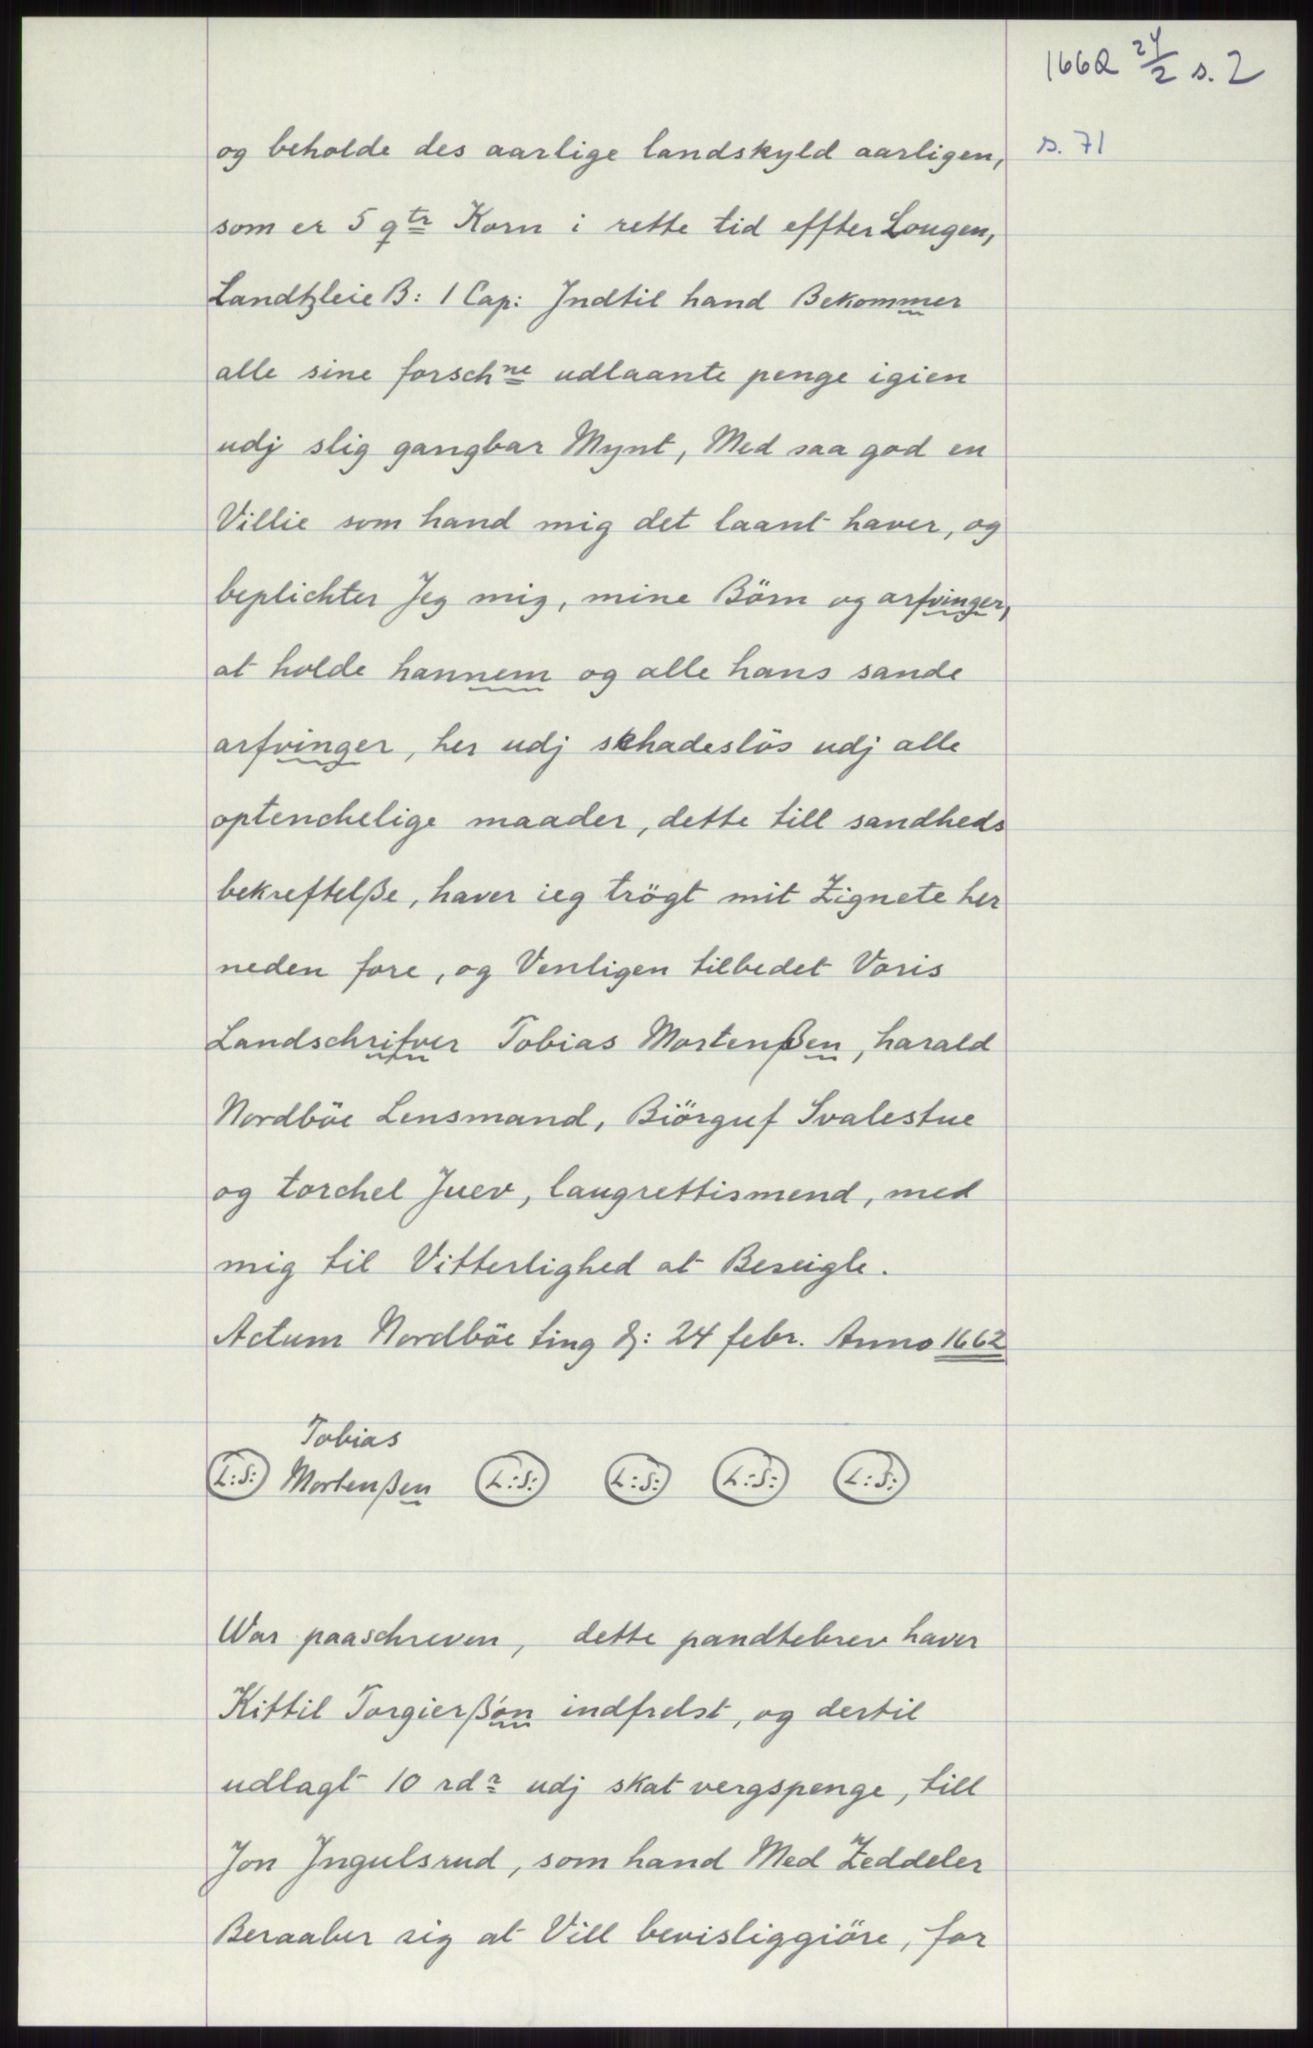 1662 24/2 s. 2
s. 71
og beholde des aarlige landskyld aarligen,
som er 5 qtr Korn i rette tid effter Lougen,
Landtzleie B: 1 Cap: Jndtil hand Bekommer
alle sine forschne udlaante penge igien
udj slig gangbar Mynt, Med saa god en
Villie som hand mig det laant haver, og
beplichter Jeg mig, mine Börn og arfvinger,
at holde hannem og alle hans sande
arfvinger, her udj skhadeslös udj alle
optenchelige maader, dette till sandheds
bekreftelße, haver ieg trögt mit Zignete her
neden fore, og Venligen tilbedet Voris
Landschrifver Tobias Mortenßen, harald
Nordböe Lensmand, Biörguf Svalestue
og torchel Juev, laugrettismend, med
mig til Vitterlighed at Beseigle.
Actum Nordböe ting dj: 24 febr. Anno 1662
Tobias
L:S: Mortenßen L:S: L:S: L:S: L:S:
War paaschreven, dette pandtebrev haver
Kittil Torgierßön indfrelst, og dertil
udlagt 10 rdr udj skat vergspenge, till
Jon Jngulsrud, som hand Med Zeddeler
Beraaber sig at Vill bevisliggiöre, for